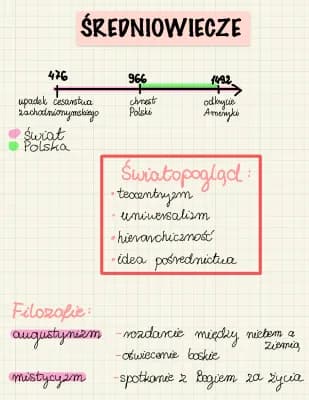 ŚREDNIOWIECZE
476 966 1492
upadek cesarstwa zachodniorzymskiego
chrzest Polski
odkrycie Ameryki
Świat
Polska
Światopogląd:
• teocentryzm
• uniwersalizm
• hierarchiczność
• idea pośrednictwa
Filozofie:
augustynizm - rozdarcie między niebem a ziemią,
- oświecenie boskie
mistycyzm - spotkanie z Bogiem za życia